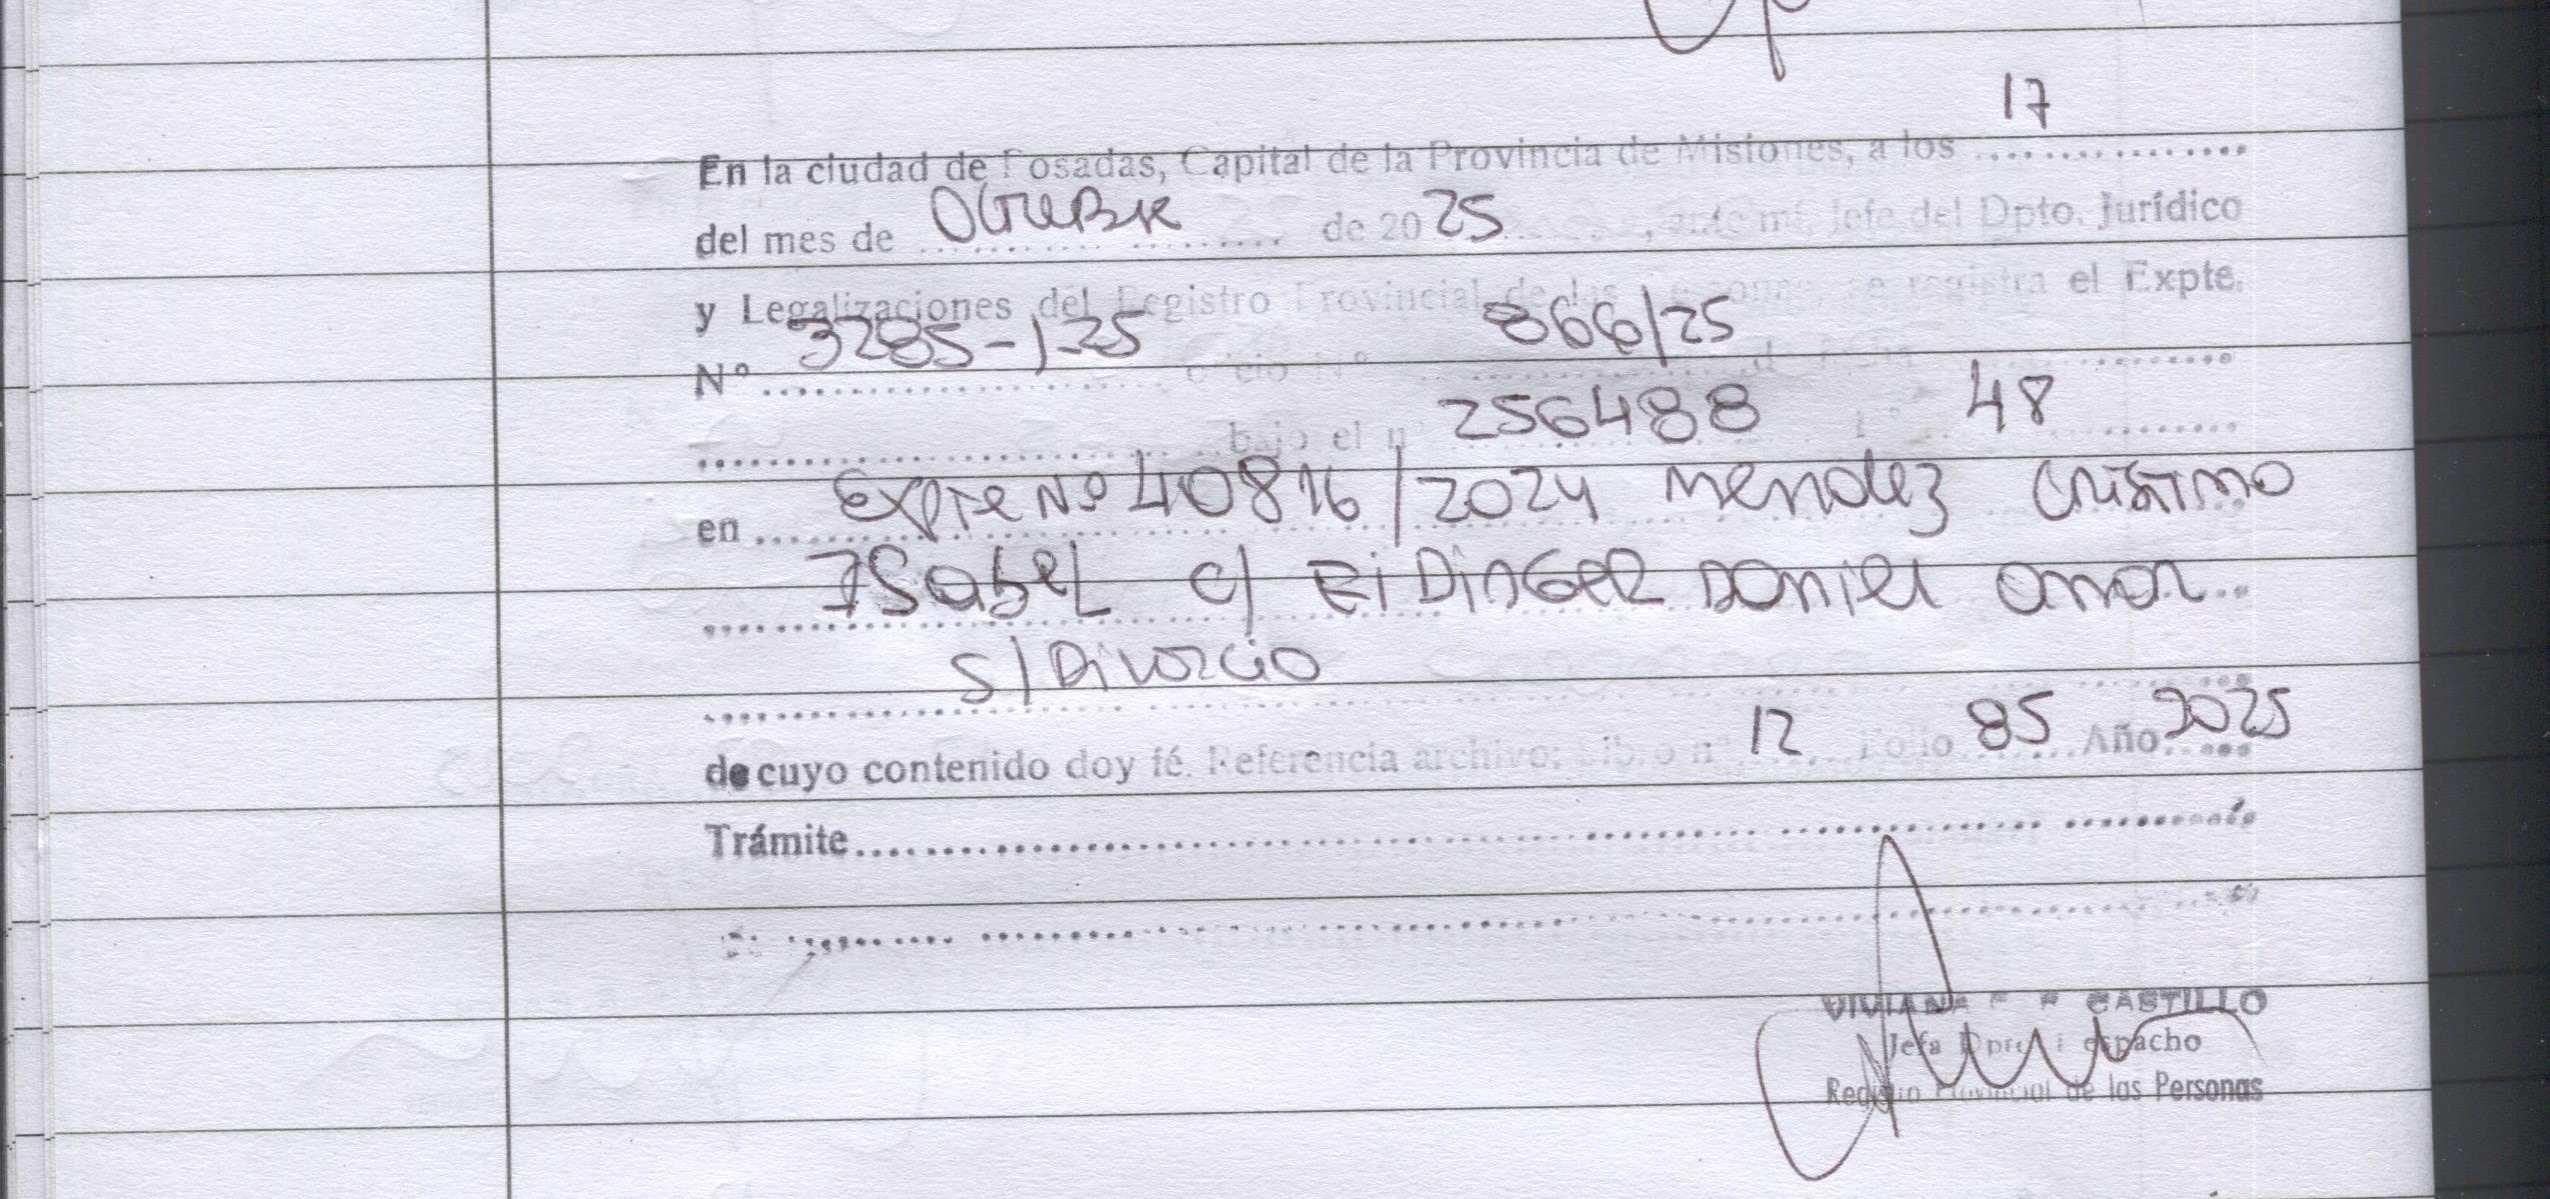 17
En la ciudad de Posadas, Capital de la Provincia de Misiones, a los ..............
del mes de Octubre de 2025, ante mí, Jefe del Dpto. Jurídico
y Legalizaciones del Registro Provincial de las Personas, se registra el Expte.
Nº 3285-1-25 oficio Nº 866/25
bajo el nº 256488 48
en Expte Nº 40816/2024 Mendez Cristina
Isabel c/ Eidinger Daniel Omar
s/ Divorcio
de cuyo contenido doy fé. Referencia archivo: Libro nº 12 Folio 85 Año 2025
Trámite..............
VIVIANA CASTILLO
Jefa Dpto. Despacho
Registro Provincial de las Personas